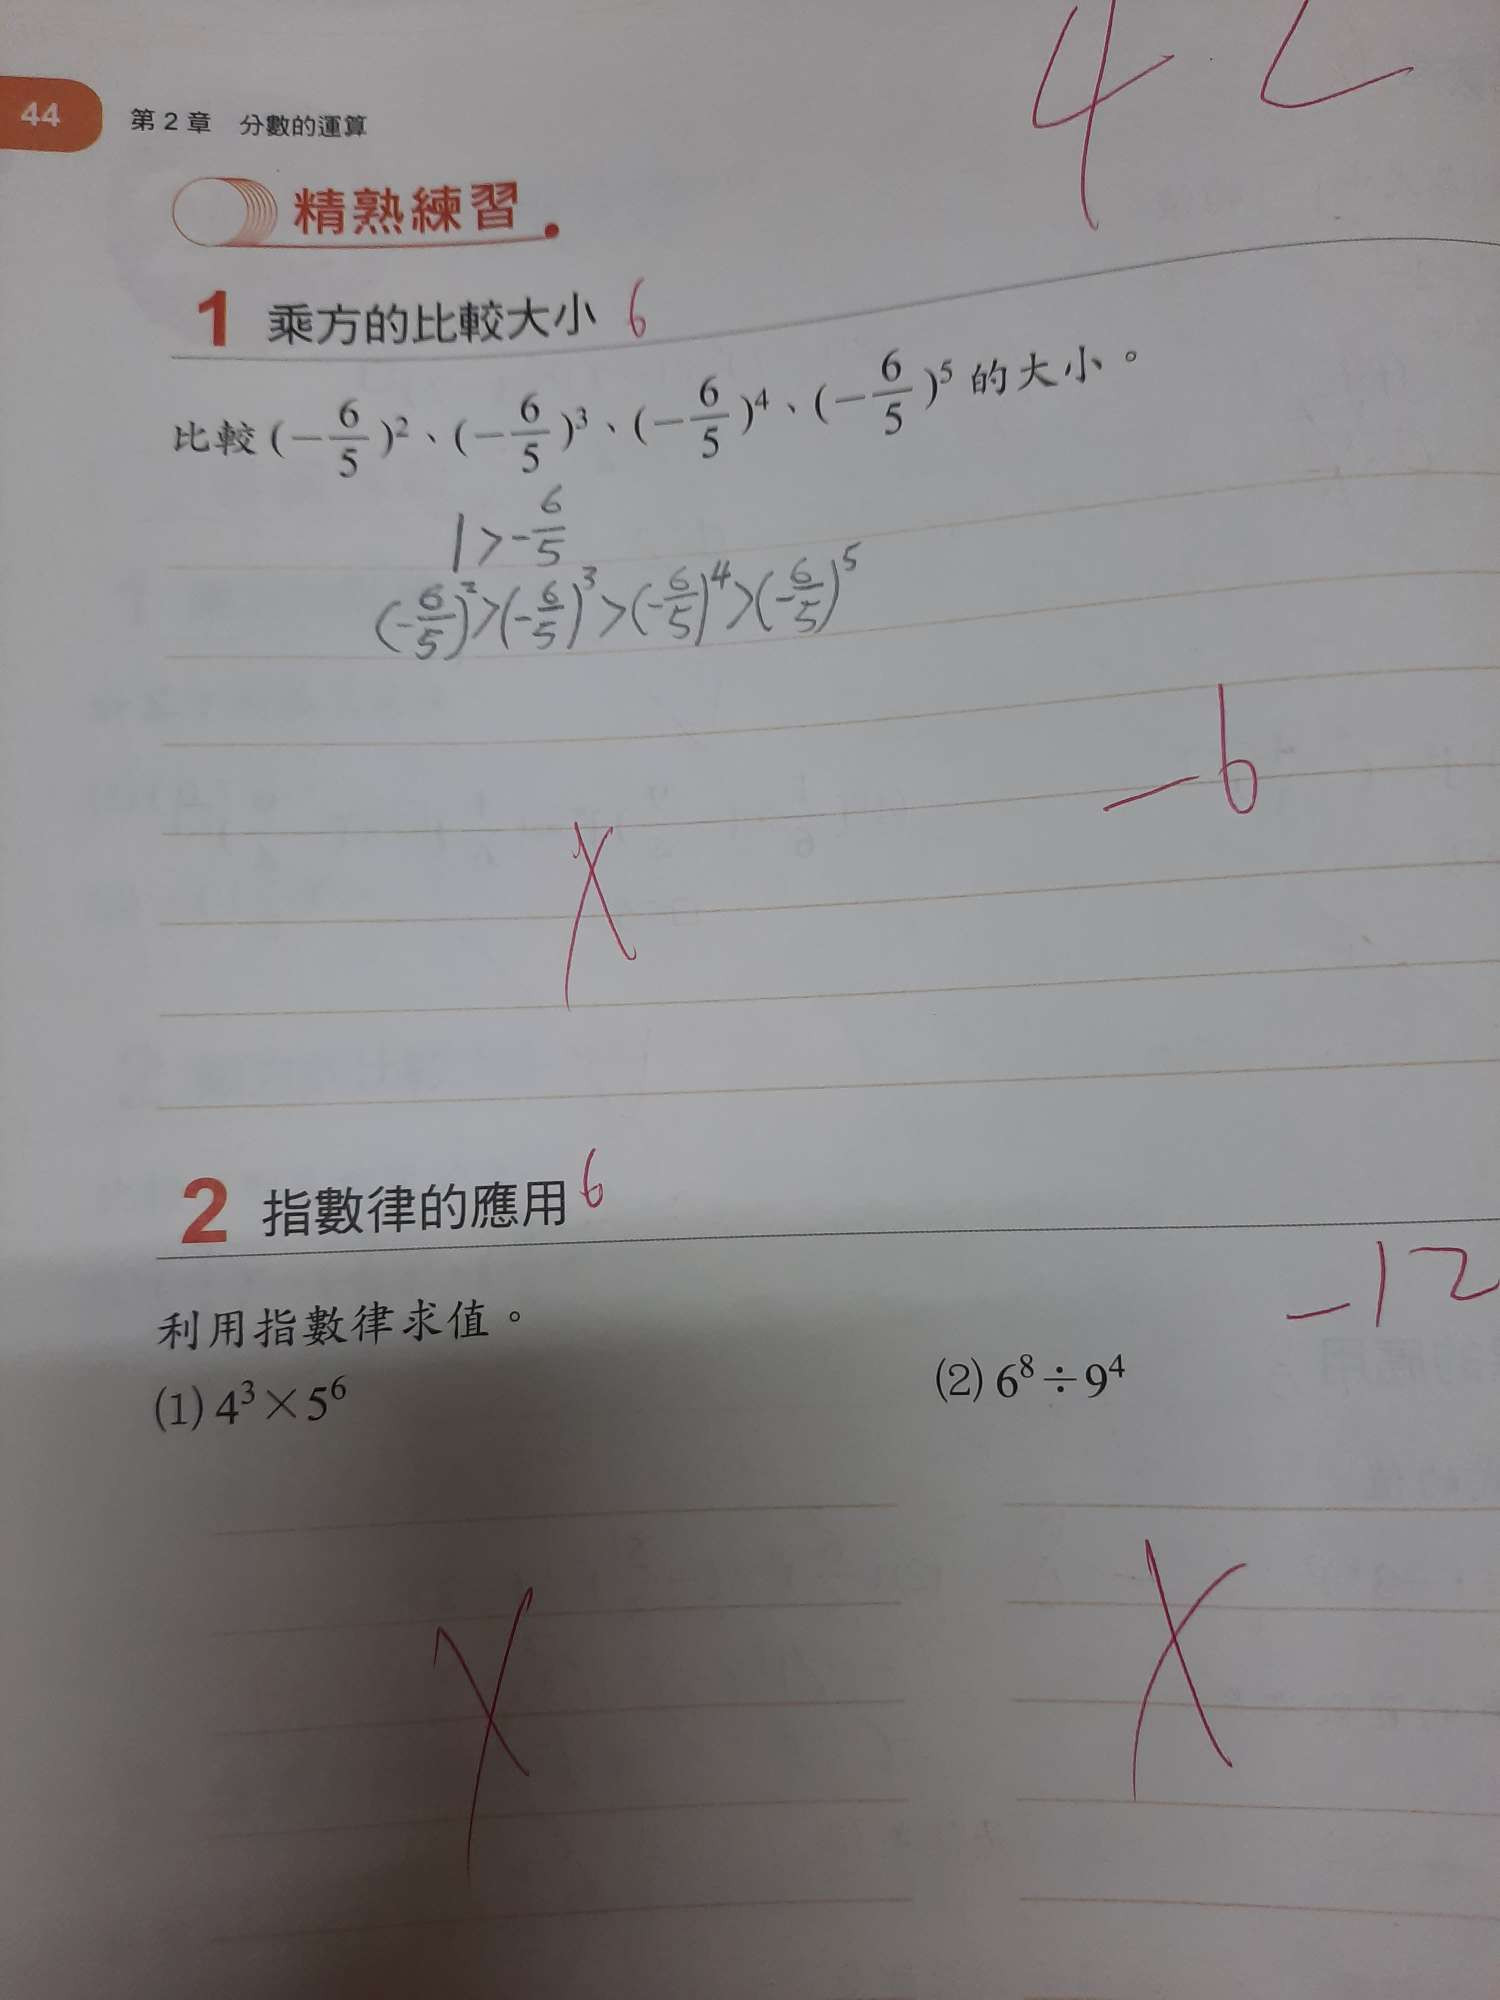 4.2
44 第2章 分數的運算
精熟練習
1 乘方的比較大小 6
比較 (-6/5)²、(-6/5)³、(-6/5)⁴、(-6/5)⁵ 的大小。
1>-6/5
(-6/5)²>(-6/5)³>(-6/5)⁴>(-6/5)⁵
-6
2 指數律的應用 6
-12
利用指數律求值。
(1) 4³×5⁶
(2) 6⁸÷9⁴